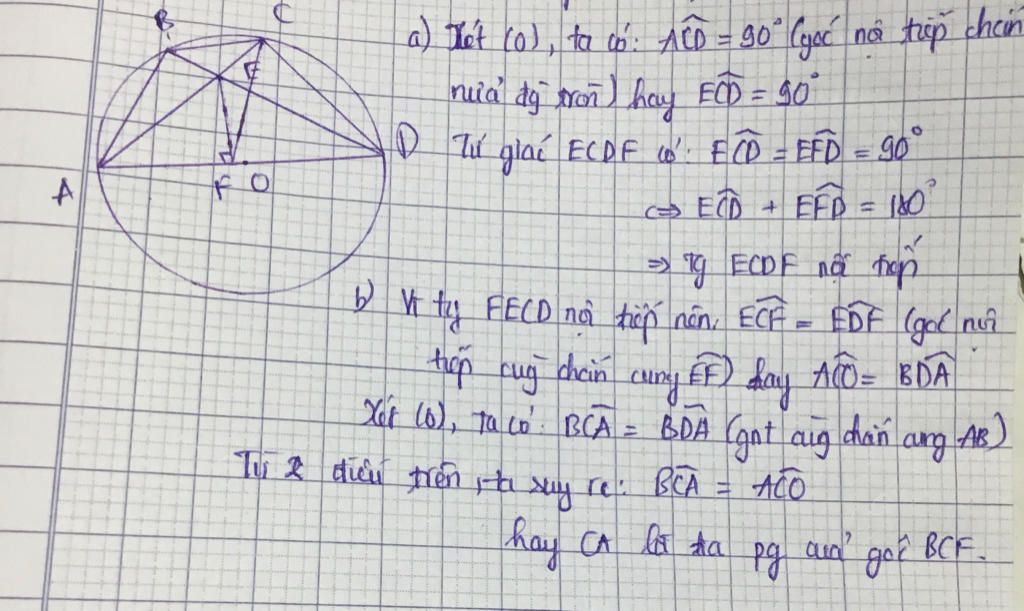 B
C
E
A
F
O
D
a) Xét (O), ta có: AĈD = 90° (góc nội tiếp chắn
nửa đg tròn) hay EĈD = 90°
Tứ giác ECDF có: EĈD = EF̂D = 90°
<=> EĈD + EF̂D = 180°
=> Tg ECDF nội tiếp
b) Vì tg FECD nội tiếp nên: EĈF = ED̂F (góc nội
tiếp cùg chắn cung EF) hay AĈO = BD̂A
Xét (O), ta có: BĈA = BD̂A (gnt cùg chắn cung AB)
Từ 2 điều trên, ta suy ra: BĈA = AĈO
hay CA là tia pg của góc BCF.